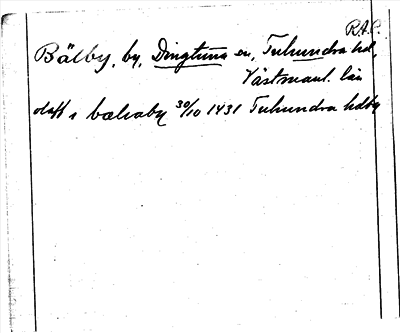 R.A.P.
Bälby, by, Dingtuna sn, Tuhundra hd,
Västmanl. län
olaff i balaby 30/10 1431 Tuhundra hdby